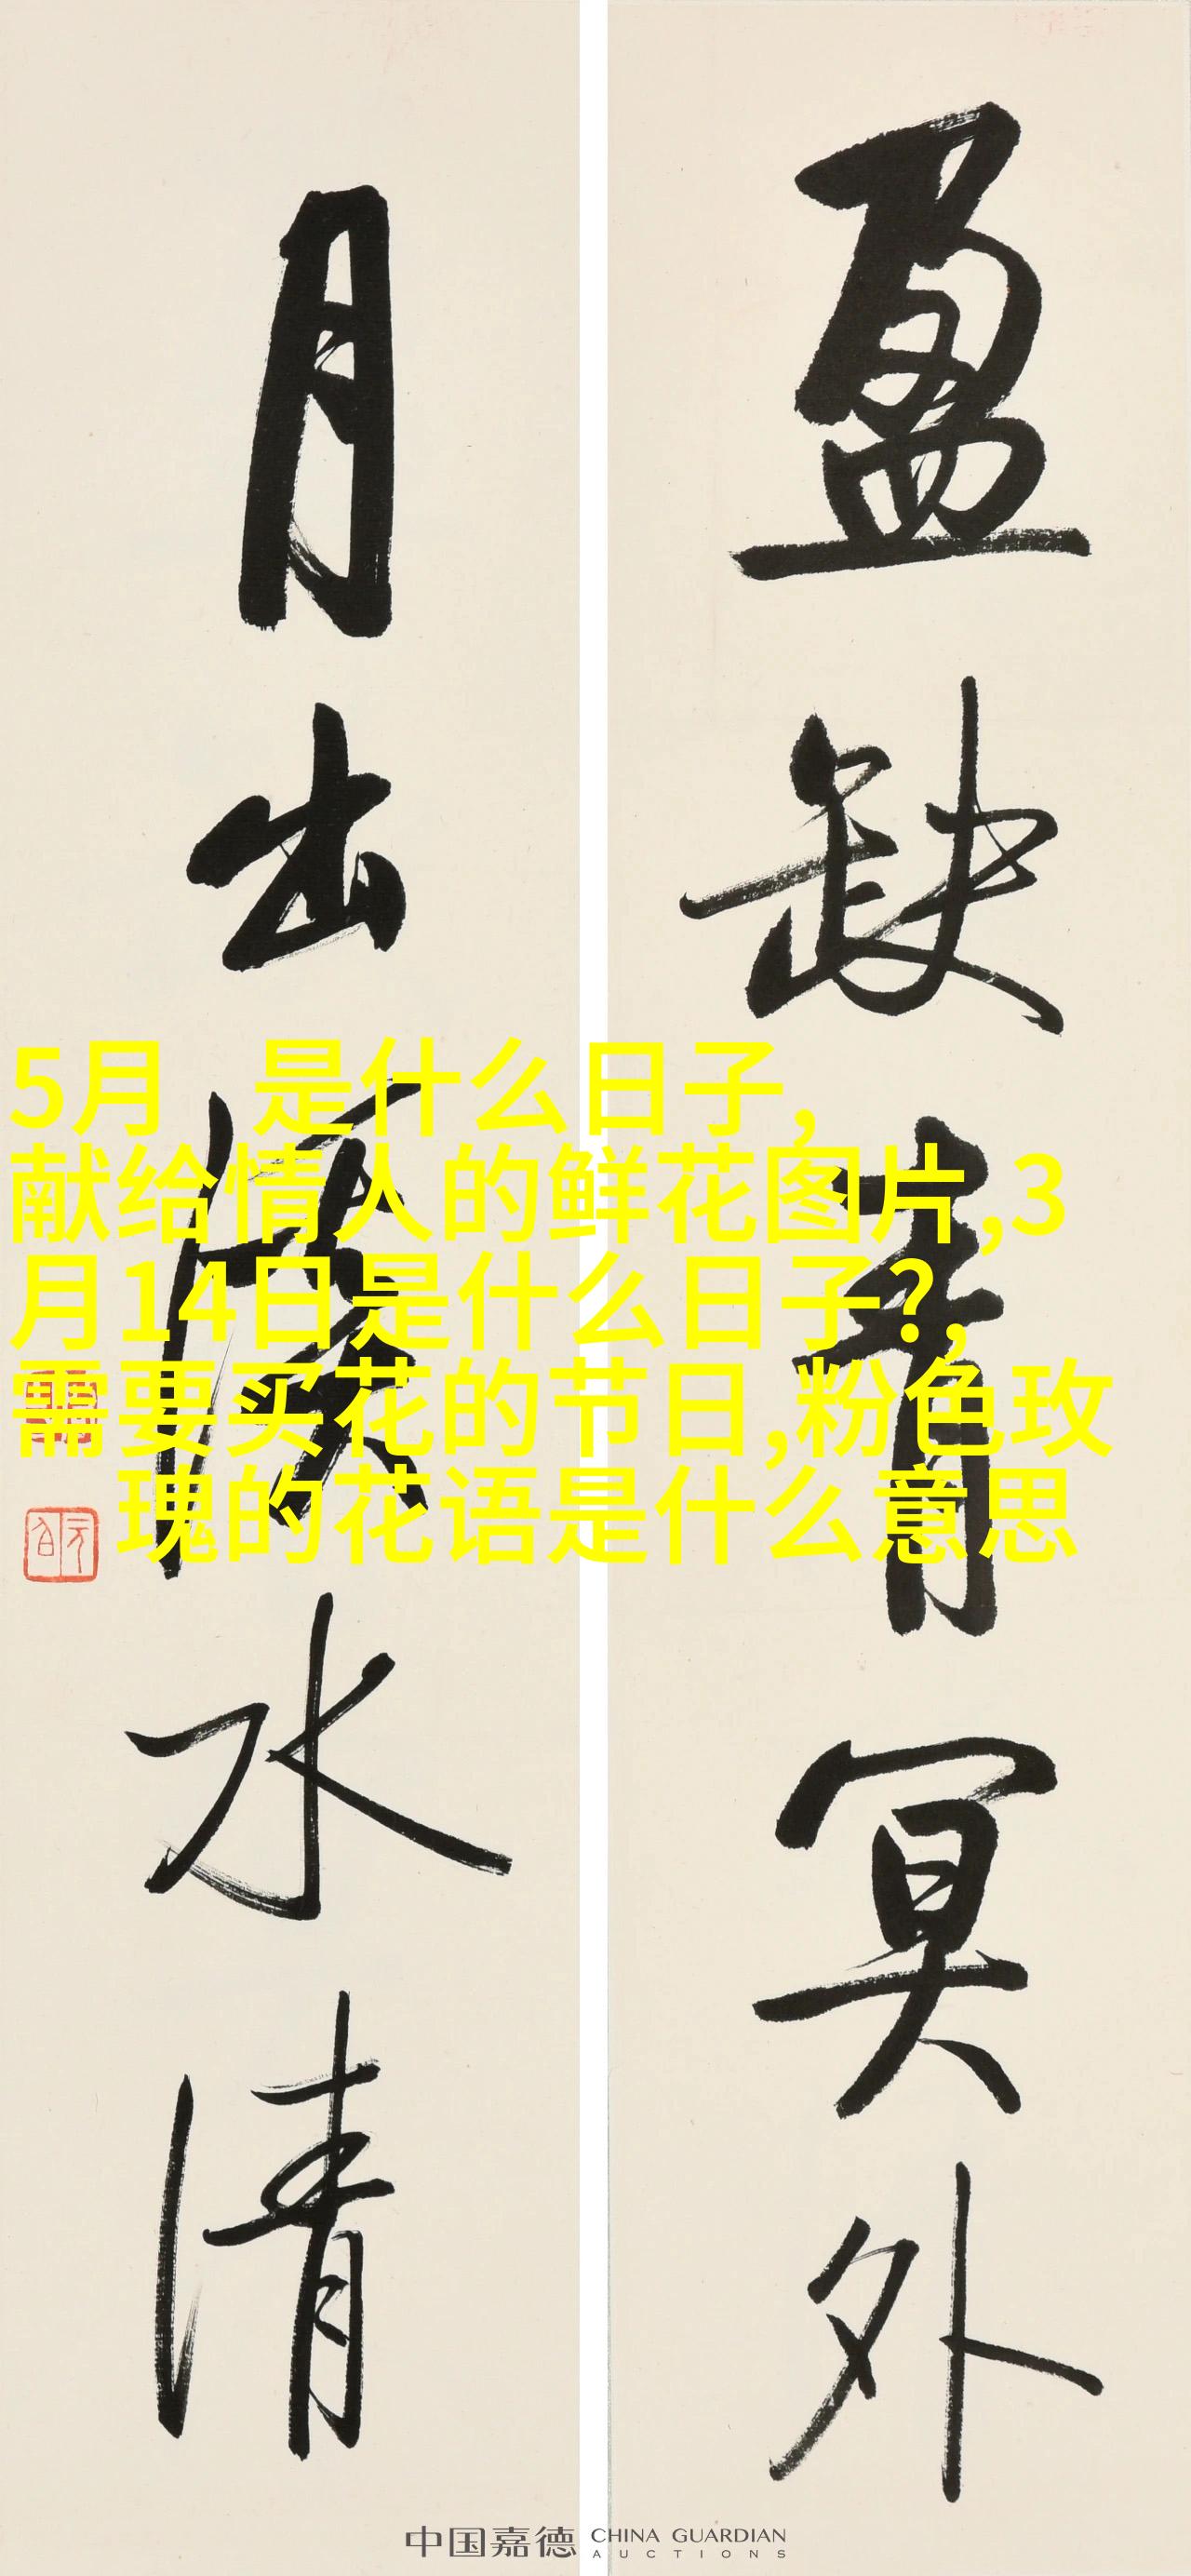 盈缺青冥外
月出水清
5月 是什么日子,
献给情人的鲜花图片,3
月14日是什么日子?,
需要买花的节日,粉色玫
瑰的花语是什么意思
中国嘉德 CHINA GUARDIAN
AUCTIONS